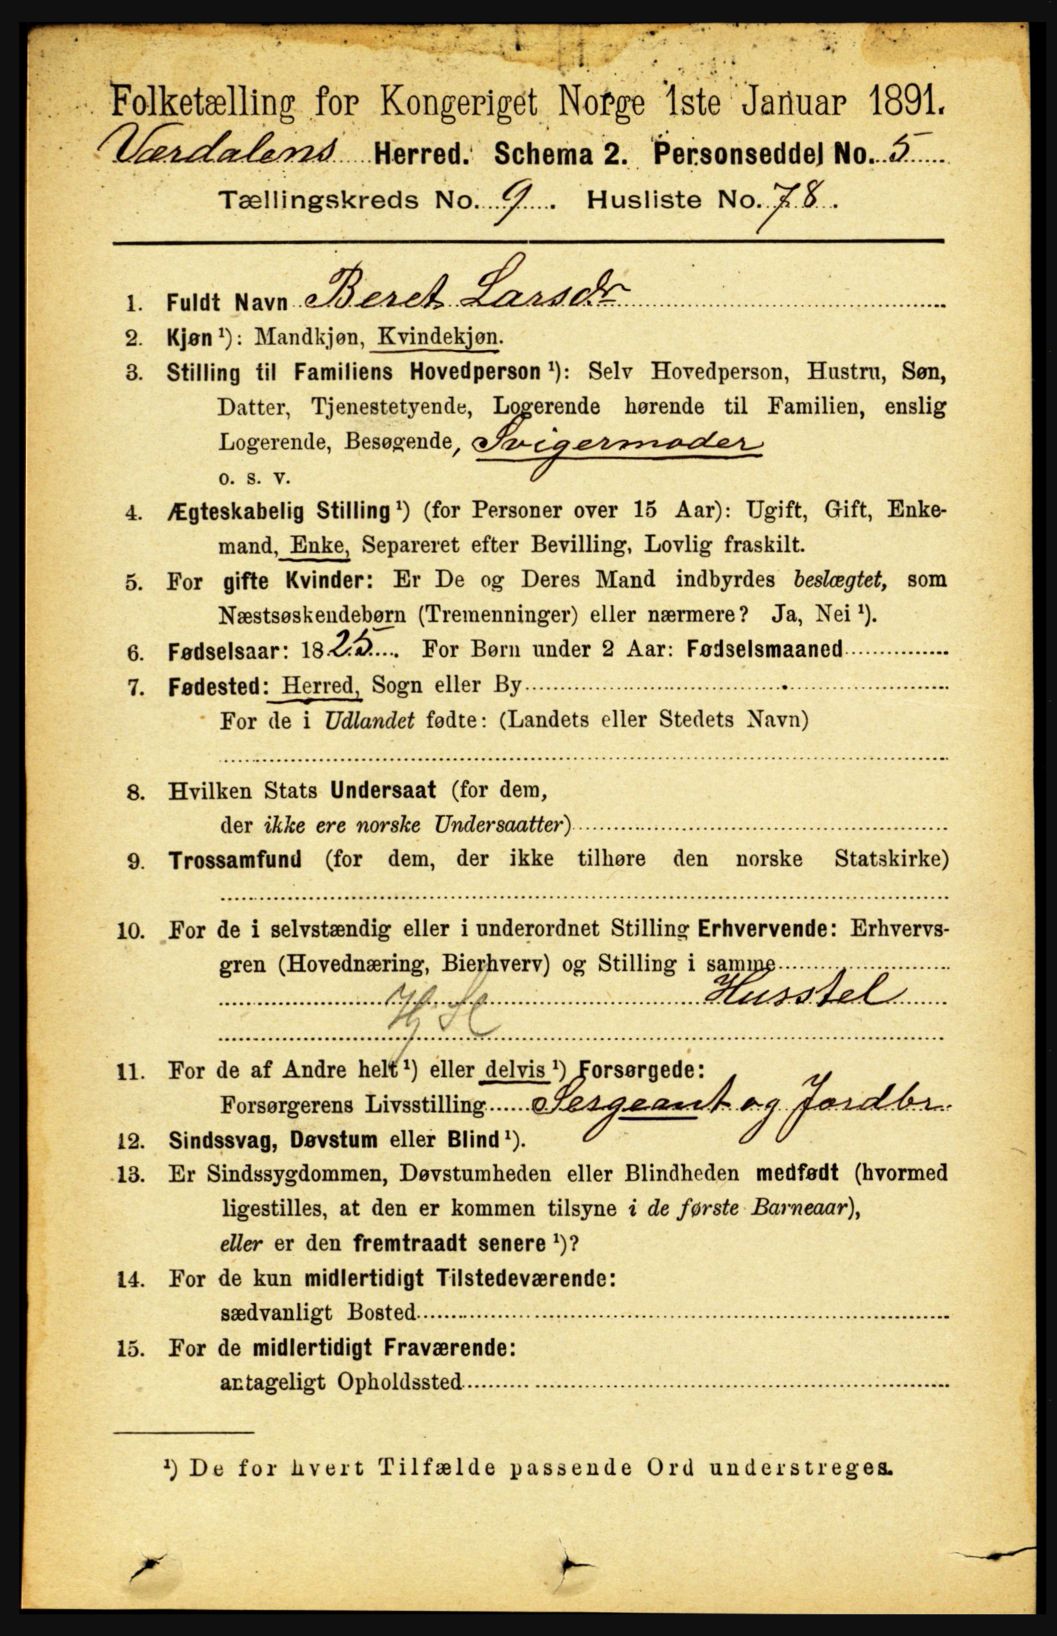 Folketælling for Kongeriget Norge 1ste Januar 1891.
Værdalens Herred. Schema 2. Personseddel No. 5
Tællingskreds No. 9. Husliste No. 78.
1. Fuldt Navn Beret Larsdr
2. Kjøn ¹): Mandkjøn, Kvindekjøn.
3. Stilling til Familiens Hovedperson ¹): Selv Hovedperson, Hustru, Søn,
Datter, Tjenestetyende, Logerende hørende til Familien, enslig
Logerende, Besøgende, Svigermoder
o. s. v.
4. Ægteskabelig Stilling ¹) (for Personer over 15 Aar): Ugift, Gift, Enke-
mand, Enke, Separeret efter Bevilling, Lovlig fraskilt.
5. For gifte Kvinder: Er De og Deres Mand indbyrdes beslægtet, som
Næstsøskendebørn (Tremenninger) eller nærmere? Ja, Nei ¹).
6. Fødselsaar: 1825. For Børn under 2 Aar: Fødselsmaaned
7. Fødested: Herred, Sogn eller By
For de i Udlandet fødte: (Landets eller Stedets Navn)
8. Hvilken Stats Undersaat (for dem,
der ikke ere norske Undersaatter)
9. Trossamfund (for dem, der ikke tilhøre den norske Statskirke)
10. For de i selvstændig eller i underordnet Stilling Erhvervende: Erhvervs-
gren (Hovednæring, Bierhverv) og Stilling i samme
Husstel
11. For de af Andre helt ¹) eller delvis ¹) Forsørgede:
Forsørgerens Livsstilling Sergeant og Jordbr.
12. Sindssvag, Døvstum eller Blind ¹).
13. Er Sindssygdommen, Døvstumheden eller Blindheden medfødt (hvormed
ligestilles, at den er kommen tilsyne i de første Barneaar),
eller er den fremtraadt senere ¹)?
14. For de kun midlertidigt Tilstedeværende:
sædvanligt Bosted
15. For de midlertidigt Fraværende:
antageligt Opholdssted
¹) De for hvert Tilfælde passende Ord understreges.